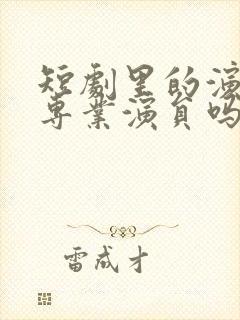 短劇里的演
専業演員嗎
雷成才